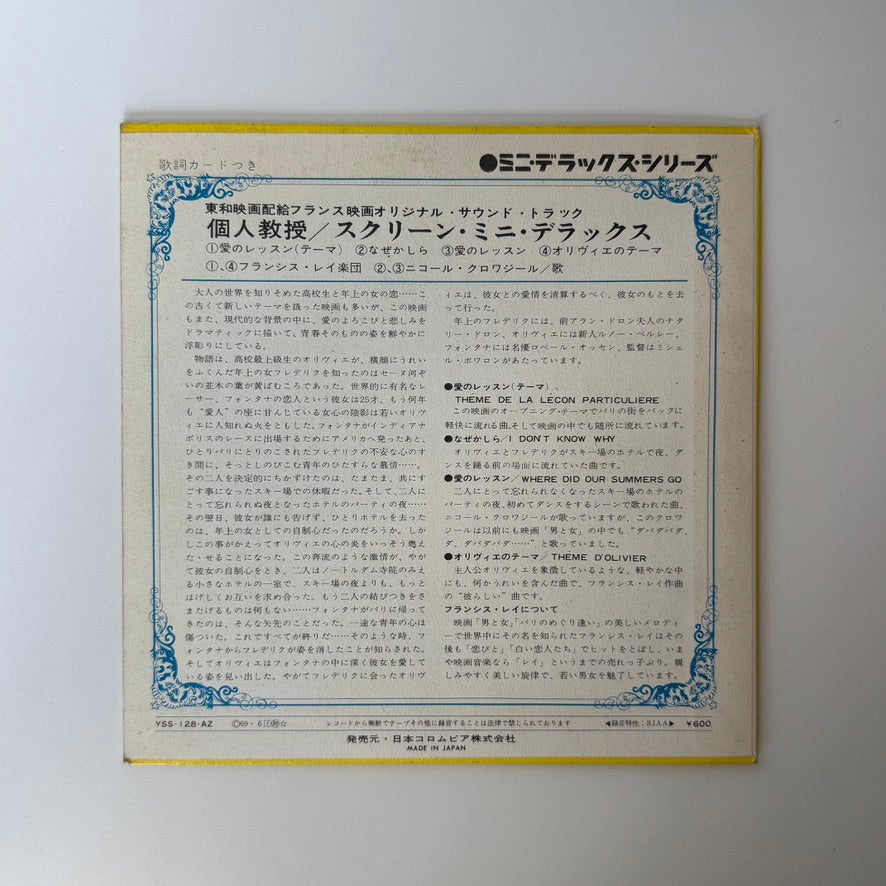 歌詞カードつき
●ミニ・デラックス・シリーズ
東和映画配給フランス映画オリジナル・サウンド・トラック
個人教授／スクリーン・ミニ・デラックス
①愛のレッスン(テーマ) ②なぜかしら ③愛のレッスン ④オリヴィエのテーマ
①、④フランシス・レイ楽団 ②、③ニコール・クロワジール／歌
大人の世界を知りそめた高校生と年上の女の恋……こ
の古くて新しいテーマを扱った映画も多いが、この映画
もまた、現代的な背景の中に、愛のよろこびと悲しみを
ドラマティックに描いて、青春そのものの姿を鮮やかに
浮彫りにしている。
物語は、高校最上級生のオリヴィエが、横顔にうれい
をふくんだ年上の女フレデリクを知ったのはセーヌ河ぞ
いの並木の葉が黄ばむころであった。世界的に有名なレ
ーサー、フォンタナの恋人という彼女は25才、もう何年
も“愛人”の座に甘んしている女心の陰影は若いオリヴ
ィエに人知れぬ火をともした。フォンタナがインディアナ
ポリスのレースに出場するためにアメリカへ発ったあと、
ひとりパリにとりのこされたフレデリクの不安な心のす
き間に、そっとしのびこむ青年のひたすらな慕情……。
その二人を決定的にちかずけたのは、たまたま、共にす
ごす事になったスキー場での休暇だった。そして、二人に
とって忘れられぬ夜となったホテルのパーティの夜……
その翌日、彼女が誰にも告げず、ひとりホテルを去った
のは、年上の女としての自制心だったのだろうか。しか
しこの事がかえってオリヴィエの心の炎をいっそう燃え
た・せることになった。この奔流のような激情が、やが
て彼女の自制心をとき、二人はノートルダム寺院のみえ
る小さなホテルの一室で、スキー場の夜よりも、もっと
はげしくお互いを求め合った。もう二人の結びつきをさ
またげるものは何もない……フォンタナがパリに帰って
きたのは、そんな矢先のことだった。一途な青年の心は
傷ついた。これですべてが終りだ……そのような時、フ
ォンタナからフレデリクが姿を消したことが知らされた。
そしてオリヴィエはフォンタナの中に深く彼女を愛して
いる姿を見い出した。やがてフレデリクに会ったオリヴ
ィエは、彼女との愛情を清算するべく、彼女のもとを去
って行った。
年上のフレデリクには、前アラン・ドロン夫人のナタ
リー・ドロン、オリヴィエには新人ルノー・ベルレー、
フォンタナには名優ロベール・オッセン、監督はミシェ
ル・ボワロンがあたっています。
●愛のレッスン(テーマ)、
THEME DE LA LECON PARTICULIERE
この映画のオープニング・テーマでパリの街をバックに
軽快に流れる曲、そして映画の中でも随所に流れています。
●なぜかしら/I DON'T KNOW WHY
オリヴィエとフレデリクがスキー場のホテルで夜、ダ
ンスを踊る前の場面に流れていた曲です。
●愛のレッスン/WHERE DID OUR SUMMERS GO
二人にとって忘れられなくなったスキー場のホテルの
パーティの夜、初めてダンスをするシーンで歌われた曲、
ニコール・クロワジールが歌っていますが、このクロワ
ジールは以前にも映画「男と女」の中でも“ダバダバダ
ダ、ダバダバダ……”と歌っていました。
●オリヴィエのテーマ/THEME D'OLIVIER
主人公オリヴィエを象徴しているような、軽やかな中
にも、何かうれいを含んだ曲で、フランシス・レイ作曲
の“彼らしい”曲です。
フランシス・レイについて
映画「男と女」「パリのめぐり逢い」の美しいメロディ
ーで世界中にその名を知られたフランシス・レイはその
後も「恋びと」「白い恋人たち」でヒットをとばし、いま
や映画音楽なら「レイ」というまでの売れっ子ぶり。親
しみやすく美しい旋律で、若い男女を魅了しています。
YSS・128・AZ
Ⓒ69・6
レコードから無断でテープその他に録音することは法律で禁じられております
◀録音特性：RIAA▶
￥600
発売元・日本コロムビア株式会社
MADE IN JAPAN